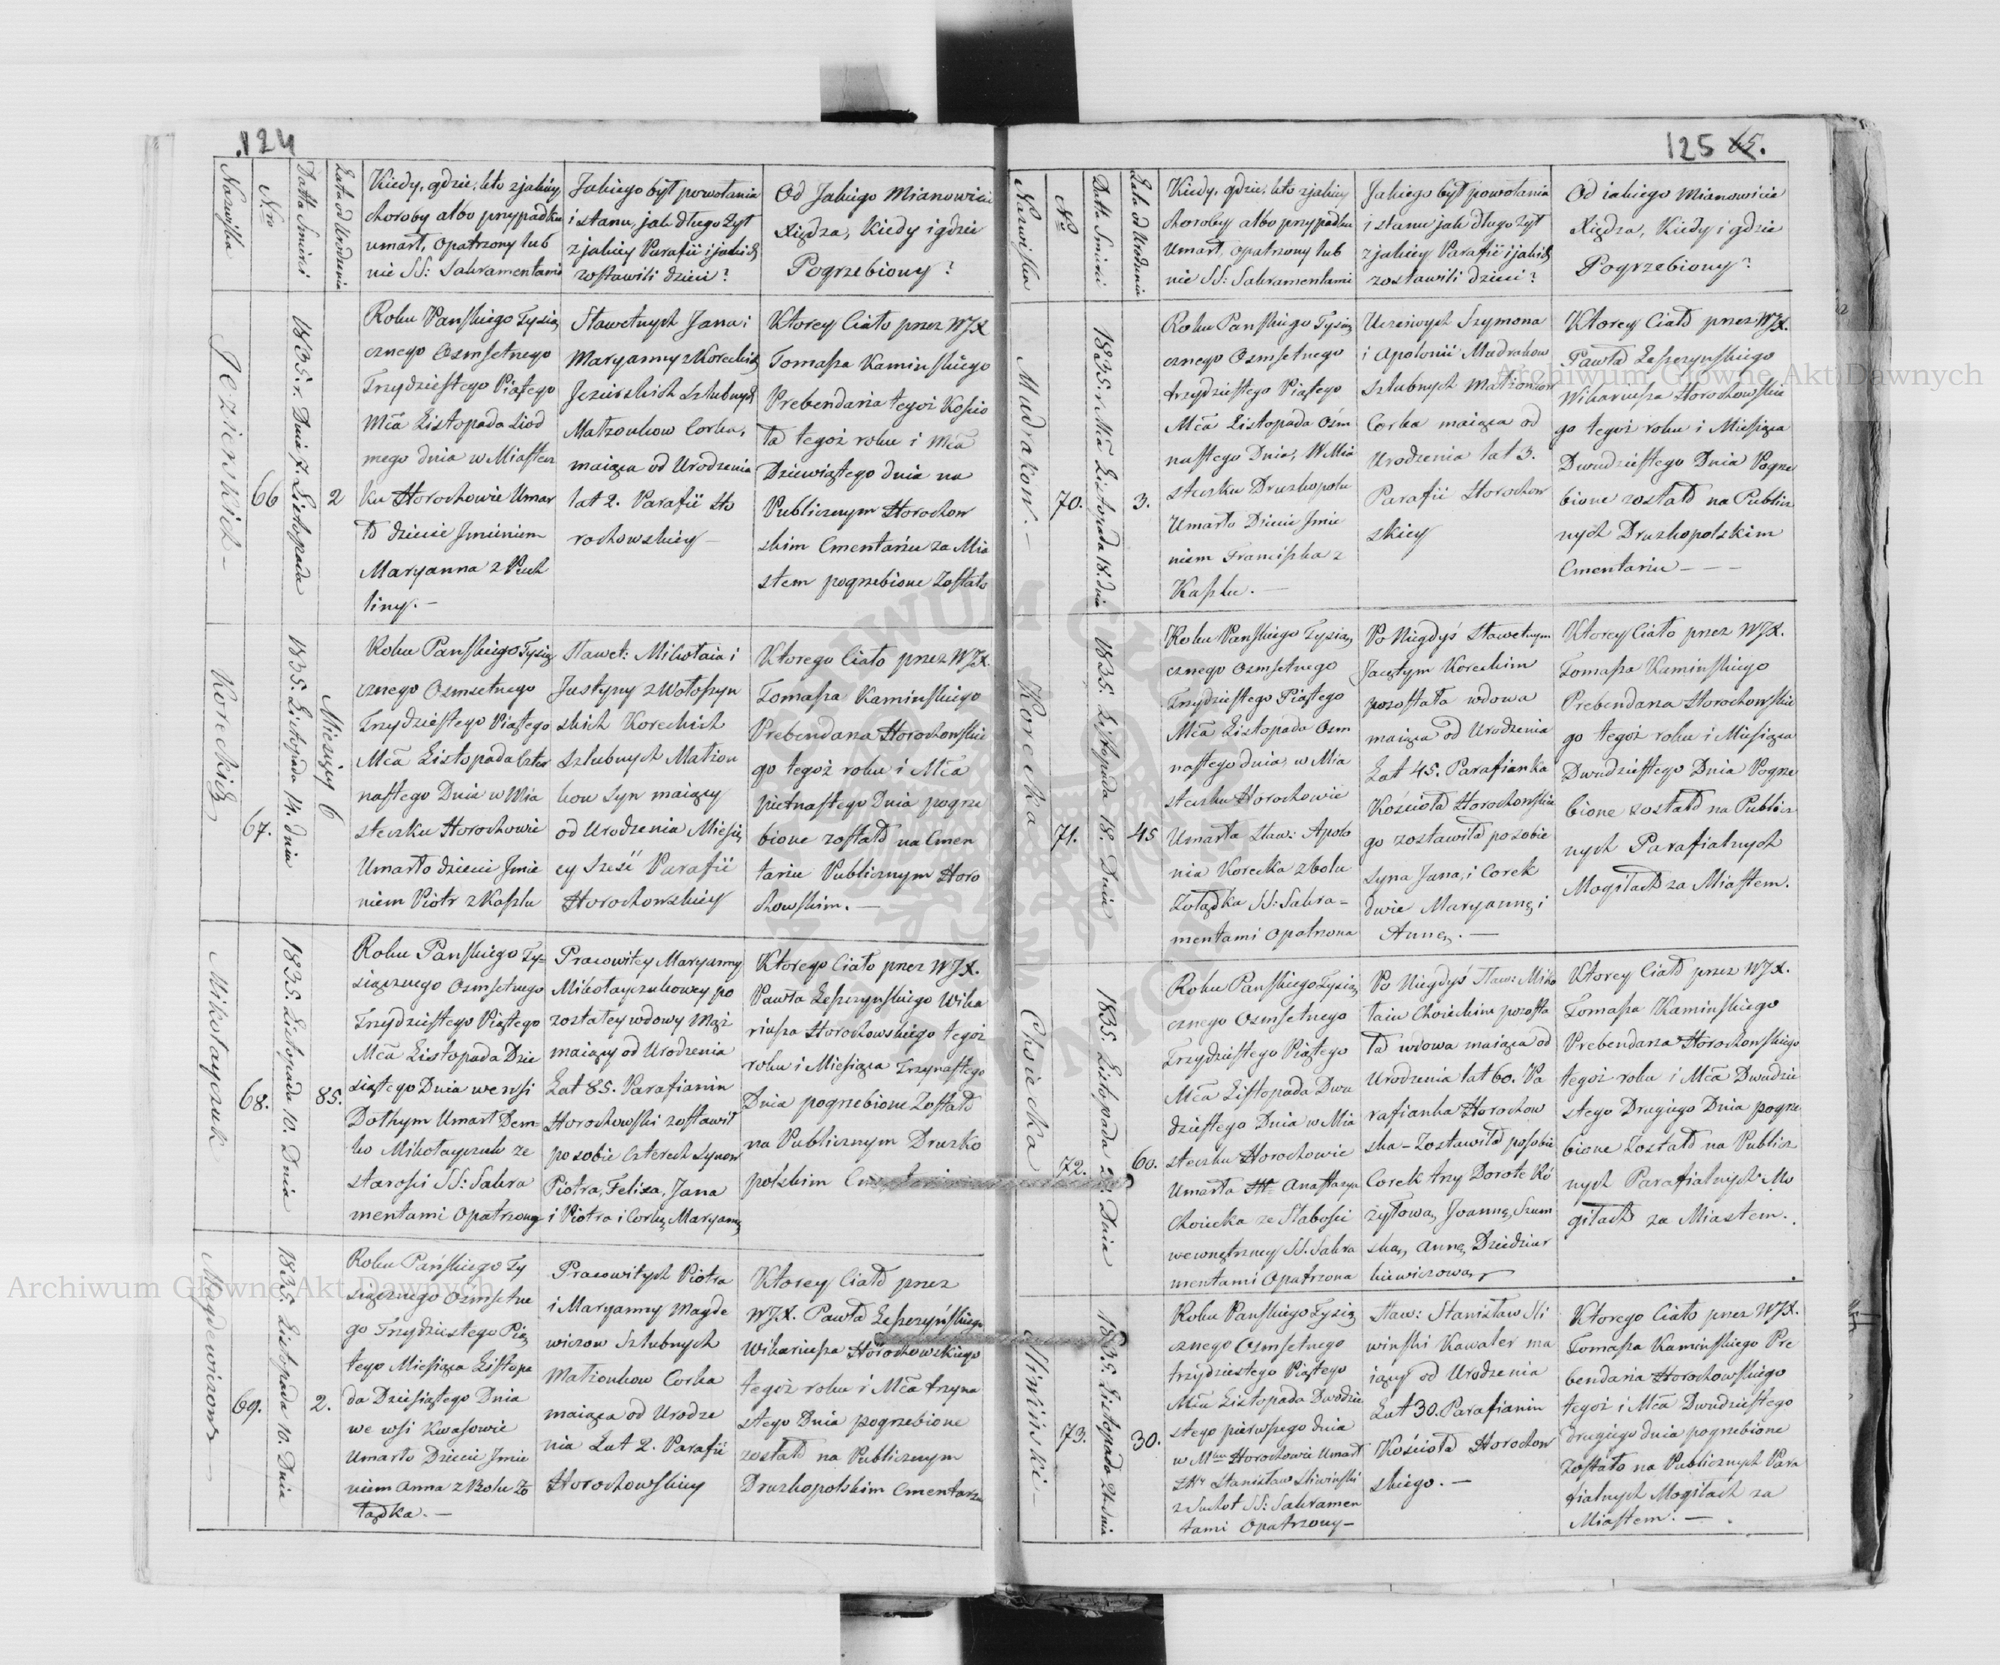 .124
Nazwiska
Nro
Datta Smierci
Lata od Urodzenia
Kiedy, gdzie, kto z jakiey
choroby albo przypadku
umarł, opatrzony lub
nie SS: Sakramentami
Jakiego był powołania
i stanu, jak długo żył
z jakiey Parafii i jakich
zostawili dzieci?
Od Jakiego Mianowicie
Xiędza, Kiedy i gdzie
Pogrzebiony?
Jezierskich –
66
1835. r. Dnia 7. Listopada
2
Roku Pańskiego Tysią
cznego Osmsetnego
Trzydziestego Piątego
Mca Listopada Siod
mego dnia w Miastecz
ku Horochowie Umar
ło dziecie Jmieniem
Maryanna z Puch
liny. –
Sławetnych Jana i
Maryanny z Koreckich
Jezierskich Szlubnych
Matzonkow Corka,
maiąca od Urodzenia
lat 2. Parafii Ho
rochowskiey –
Ktorey Ciało przez WJX
Tomasza Kaminskiego
Prebendaria tegoż Koscio
ła tegoż roku i Mca
Dziewiątego dnia na
Publicznym Horochow
skim Cmentarzu za Mia
stem pogrzebione Zostało
Koreckich
67.
1835. Listopada 14. dnia
Miesięcy 6
Roku Pańskiego Tysią
cznego Osmsetnego
Trzydziestego Piątego
Mca Listopada Czter
nastego Dnia w Mia
steczku Horochowie
Umarło dzieci Jmie
niem Piotr z Kaszlu
Sławet: Mikołaia i
Justyny z Wołoszyn
skich Koreckich
Szlubnych Matzon
kow Syn maiący
od Urodzenia Miesię
cy Sześć Parafii
Horochowskiey
Ktorego Ciało przez WJX.
Tomasza Kaminskiego
Prebendaria Horochowskie
go tegoż roku i Mca
pietnastego Dnia pogrze
bione zostało na Cmen
tarzu Publicznym Horo
chowskim. –
Mikołayczuk
68.
1835. Listopada 10. Dnia
85.
Roku Pańskiego Ty=
siącznego Osmsetnego
Trzydziestego Piątego
Mca Listopada Dzie
siątego Dnia we wsi
Dołhym Umarł Dem=
ko Mikołayczuk ze
starości SS: Sakra
mentami Opatrzony
Pracowitey Maryanny
Mikołayczukowey po
zostałey wdowy Mąż
maiący od Urodzenia
Lat 85. Parafianin
Horochowski zostawił
po sobie Czterech Synow
Piotra, Felixa, Jana
i Piotra i Corkę Maryannę
Ktorego Ciało przez WJX.
Pawła Leszczynskiego Wika
riusza Horochowskiego tegoż
roku i Miesiąca Trzynastego
Dnia pogrzebione Zostało
na Publicznym Druzko
polskim
Magdewiczow
69.
1835. Listopada 10. Dnia
2.
Roku Pańskiego Ty
siącznego Osmsetne
go Trzydziestego Pią
tego Miesiąca Listopa
da Dziesiątego Dnia
we wsi Kwasowie
Umarło Dziecie Jmie
niem Anna z Bolu Żo
łądka. –
Pracowitych Piotra
i Maryanny Magde
wiczow Szlubnych
Matzonkow Corka
maiąca od Urodze
nia Lat 2. Parafii
Horochowskiey
Ktorey Ciało przez
WJX. Pawła Leszczyńskiego
Wikariusza Horochowskiego
tegoż roku i Mca trzyna
stego Dnia pogrzebione
zostało na Publicznym
Druzkopolskim Cmentarzu
125 65.
Nazwiska
No
Datta Smierci
Lata od Urodzenia
Kiedy, gdzie, kto z jakiey
choroby albo przypadku
Umarł, opatrzony lub
nie SS: Sakramentami
Jakiego był powołania
i stanu jak długo żył
z jakiey Parafii i jakich
zostawili dzieci?
Od iakiego Mianowicie
Xiędza, Kiedy i gdzie
Pogrzebiony?
Mudrakow. –
70.
1835. r. Mca Listopada 18. dnia
3.
Roku Pańskiego Tysią
cznego Osmsetnego
trzydziestego Piątego
Mca Listopada Óśm
nastego Dnia, W Mia
steczku Druzkopolu
Umarło Dziecie Jmie
niem Franciszka z
Kaszlu. –
Uczciwych Szymona
i Apolonii Mudrakow
Szlubnych Matzonkow
Corka maiąca od
Urodzenia lat 3.
Parafii Horochow
skiey
Ktorey Ciało przez WJX.
Pawła Leszczynskiego
Wikariusza Horochowskie
go tegoż roku i Miesiąca
Dwudziestego Dnia Pogrze
bione zostało na Publicz
nych Druzkopolskim
Cmentarzu – – –
Korecka
71.
1835. Listopada 18. Dnia
45
Roku Pańskiego Tysią
cznego Osmsetnego
Trzydziestego Piątego
Mca Listopada Osm
nastego dnia, w Mia
steczku Horochowie
Umarła Sław: Apolo
nia Korecka z bolu
Żołądka SS: Sakra=
mentami Opatrzona
Po Niegdyś Sławetnym
Jacętym Koreckim
pozostała wdowa
maiąca od Urodzenia
Lat 45. Parafianka
Kościoła Horochowskie
go zostawiła po sobie
Syna Jana, i Corek
dwie Maryannę i
Annę. –
Ktorey Ciało przez WJX.
Tomasza Kaminskiego
Prebendaria Horochowskie
go tegoż roku i Miesiąca
Dwudziestego Dnia Pogrze
bione zostało na Publicz
nych Parafialnych
Mogiłach za Miastem.
Choiecka
72.
1835. Listopada 20. Dnia
60.
Roku Pańskiego Tysią
cznego Osmsetnego
Trzydziestego Piątego
Mca Listopada Dwu
dziestego Dnia w Mia
steczku Horochowie
Umarła Anastazya
Choiecka ze Słabości
wewnętrzney SS. Sakra
mentami Opatrzona
Po Niegdyś Sław: Miko
łaiu Choieckim pozosta
ła wdowa maiąca od
Urodzenia lat 60. Pa
rafianka Horochow
ska – Zostawiła po sobie
Corek trzy Dorotę Ko
żyłową, Joannę, Szum
ską, Annę, Dziedziur
kiewiczową,
Ktorey Ciało przez WJX.
Tomasza Kaminskiego
Prebendaria Horochowskiego
tegoż roku i Mca Dwudzie
stego Drugiego Dnia pogrze
bione Zostało na Publicz
nych Parafialnych Mo
giłach za Miastem.
Sliwiński –
73.
1835. Listopada 21 dnia
30.
Roku Pańskiego Tysią
cznego Osmsetnego
trzydziestego Piątego
Mca Listopada Dwudzie
stego pierwszego dnia
w Mku Horochowie Umarł
Stanisław Sliwiński
z Suchot SS: Sakramen
tami Opatrzony –
Sław: Stanisław Sli
wiński Kawaler ma
iący od Urodzenia
Lat 30. Parafianin
Kościoła Horochow
skiego. –
Ktorego Ciało przez WJX.
Tomasza Kaminskiego Pre
bendaria Horochowskiego
tegoż i Mca Dwudziestego
drugiego dnia pogrzebione
Zostało na Publicznych Para
fialnych Mogiłach za
Miastem. –
Archiwum Główne Akt Dawnych
Archiwum Główne Akt Dawnych